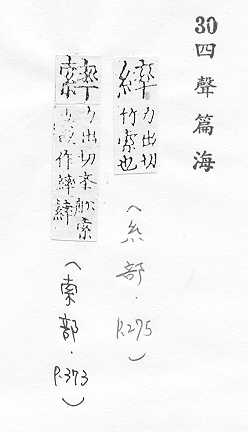 30四聲篇海
繂
力出切
竹索也
(糸部·P.275)
力出切舩索
作繂
(索部·P.373)